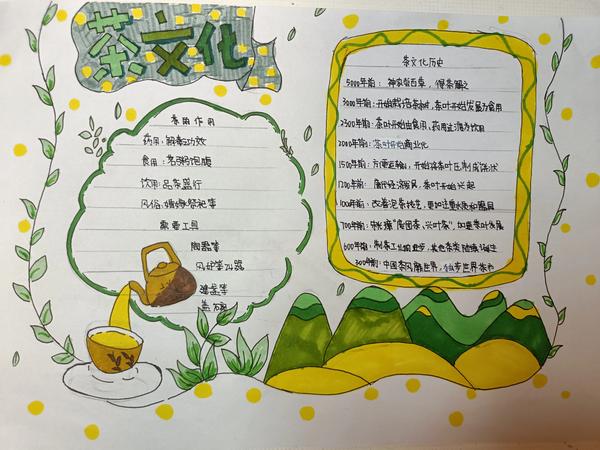 茶文化
茶的作用
药用：解毒功效
食用：烹粥饱腹
饮用：品茶盛行
风俗：婚嫁祭祀等
需要工具
陶器等
风炉等24器
建盏等
盖碗
茶文化历史
5000年前：神农尝百草，得茶解之
3000年前：开始栽培茶树，茶叶开始发展为食用
2300年前：茶叶开始由食用、药用过渡为饮用
2000年前：茶叶开始商业化
1500年前：方便运输，开始将茶叶压制成饼状
1200年前：唐代经济因风，茶叶开始兴起
1000年前：改善泡茶技艺，更加注重水和器具
700年前："废团茶，兴叶茶"，加速茶叶发展
600年前：制茶工业的进步，其他茶类陆续诞生
300年前：中国茶风靡世界，独步世界茶市